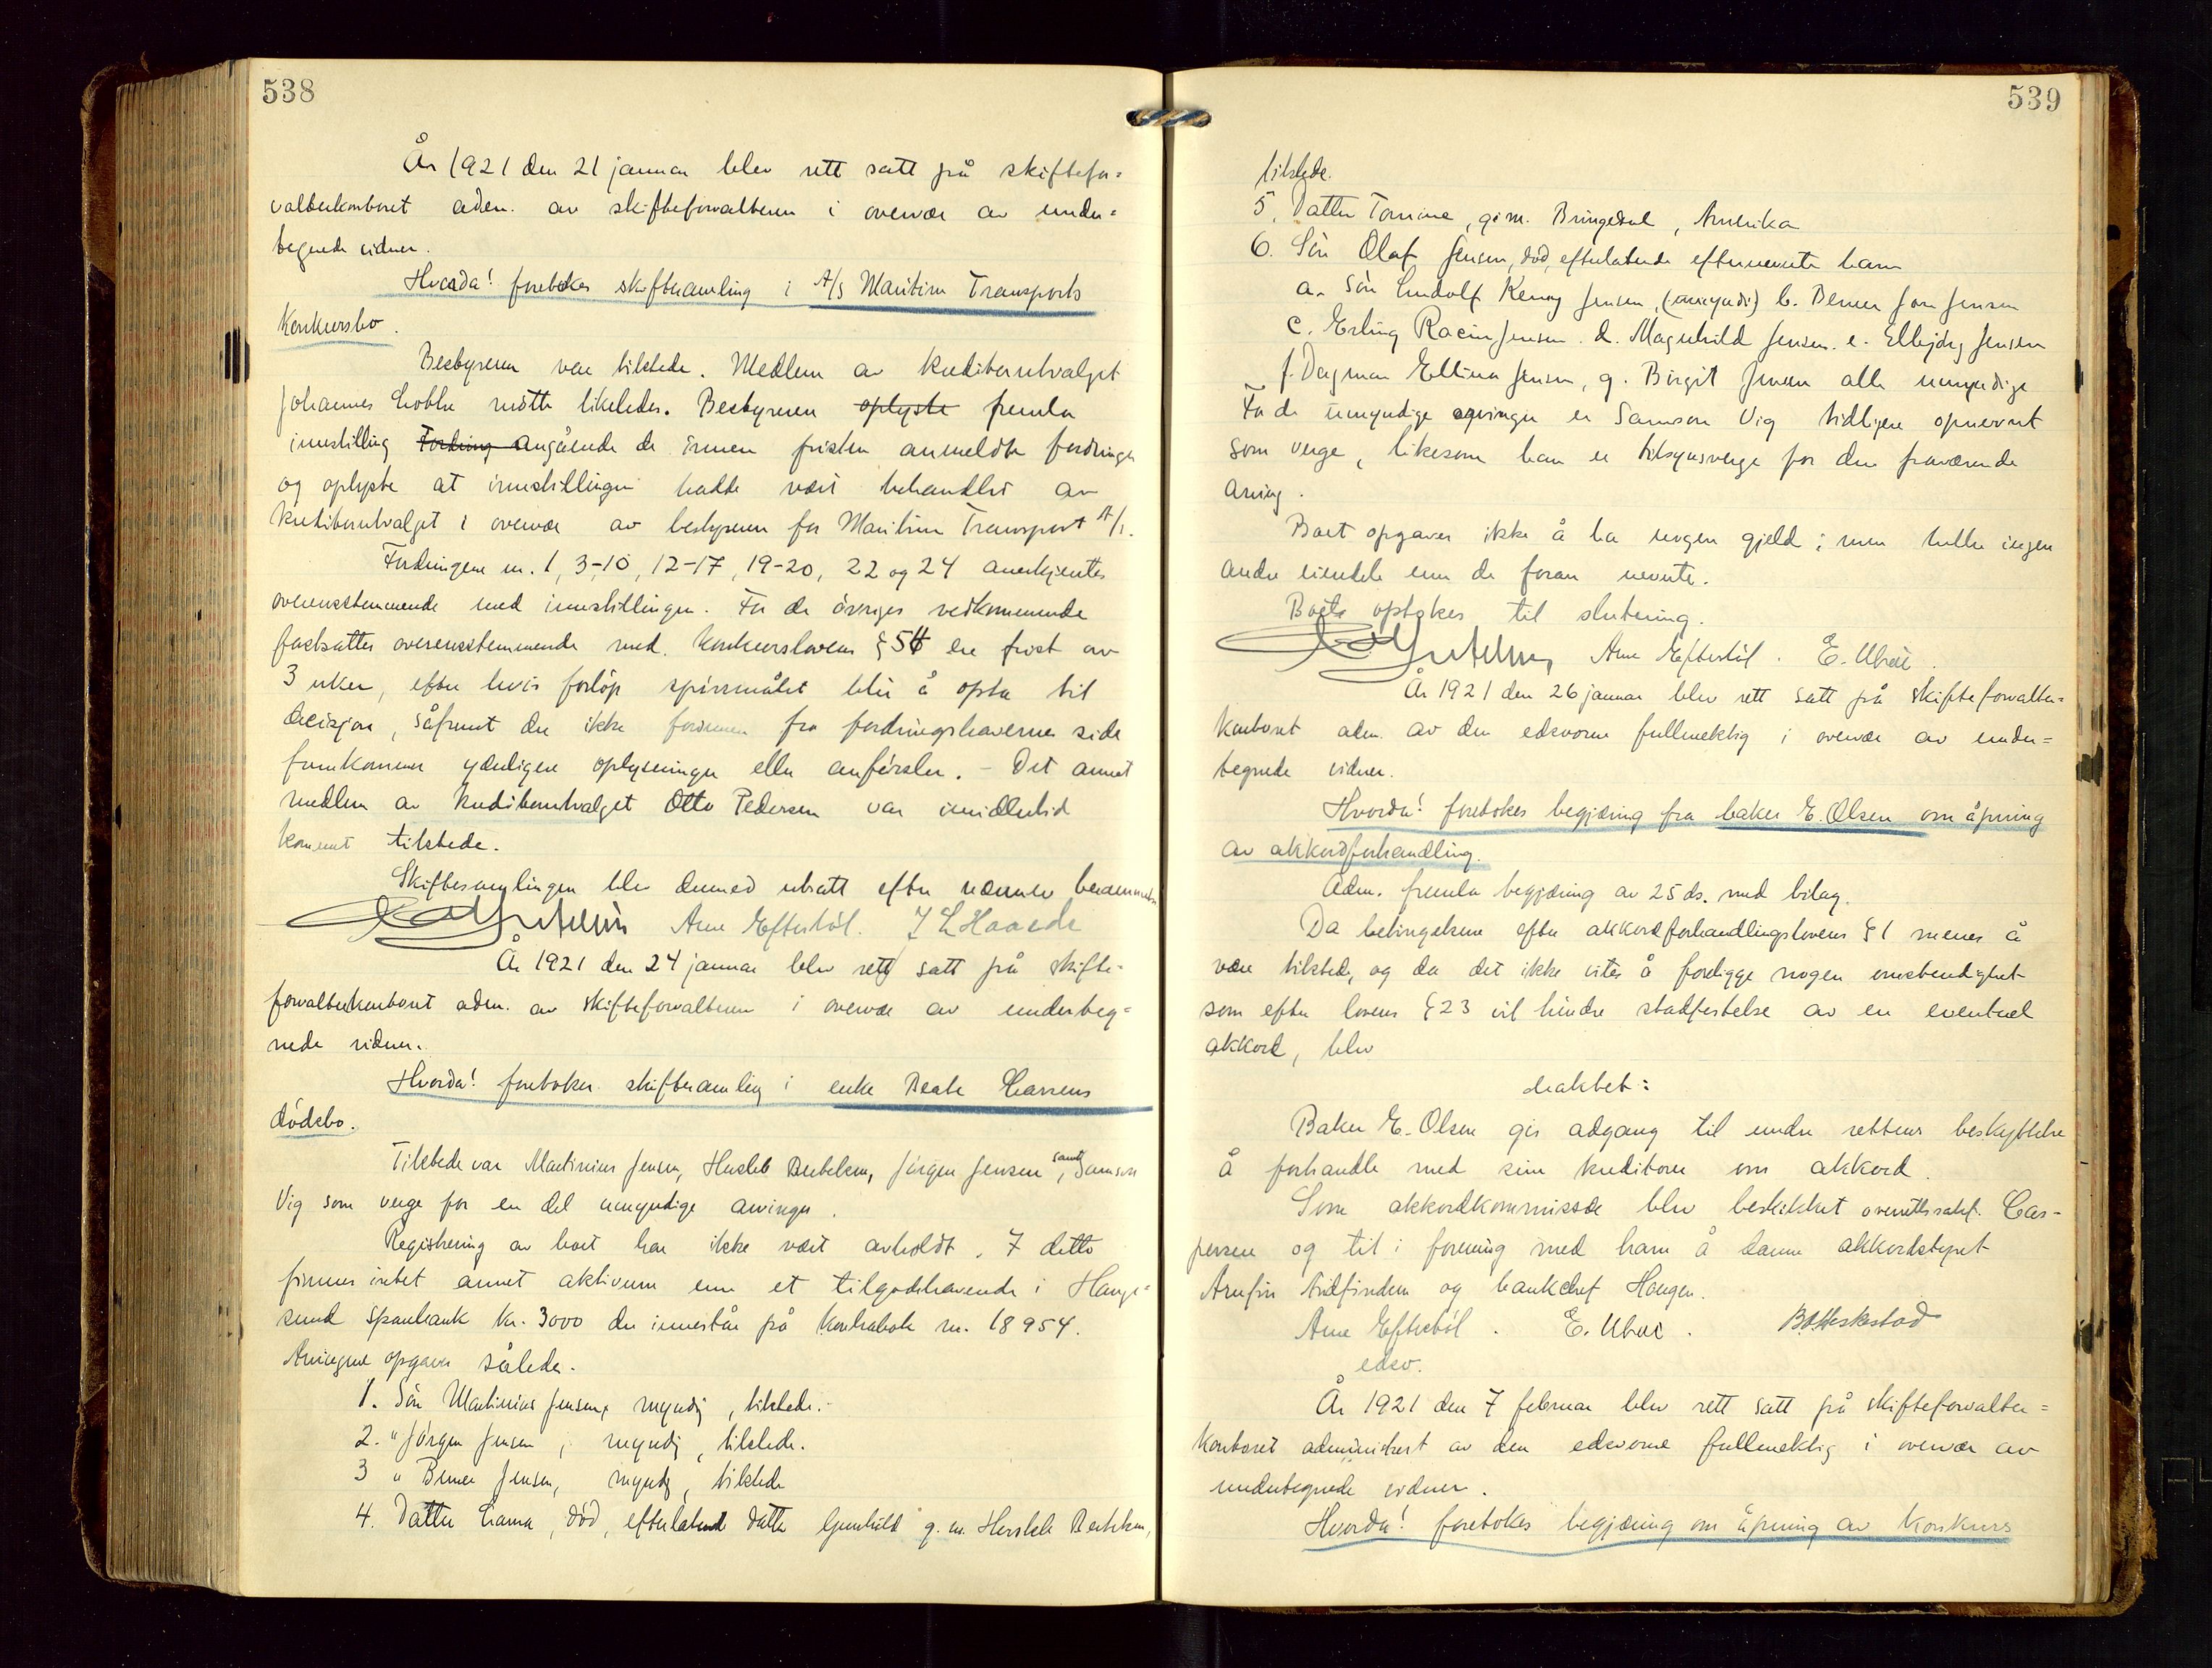 538
År 1921 den 21 januar blev rett satt på skiftefor=
valterkontoret adm. av skifteforvalteren i overvær av under=
tegnede vidner.
Hvorda! foretokes skiftesamling i A/S Maritim Transports
Konkursbo.
Bestyreren var tilstede. Medlem av kreditorutvalget
Johannes møtte likeledes. Bestyreren oplyste fremla
innstilling Fordring angående de innen fristen anmeldte fordringer
og oplyste at innstillingen hadde vært behandlet av
kreditorutvalget i overvær av bestyreren for Maritim Transport A/S.
Fordringene nr. 1, 3-10, 12-17, 19-20, 22 og 24 anerkjentes
overensstemmende med innstillingen. For de øvriges vedkommende
fastsattes overensstemmende med konkurslovens § en frist av
3 uker, efter hvis forløp spørsmålet blir å opta til
decisjon, såfremt der ikke forinnen fra fordringshavernes side
fremkommer ydterligere oplysninger eller anførsler. - Det annet
medlem av kreditorutvalget Otto Pedersen var imidlertid
kommet tilstede.
Skiftesamlingen blev dermed utsatt efter nærmere berammelse
Arne Eftestøl. J L Haaede
År 1921 den 24 januar blev rett satt på skifte=
forvalterkontoret adm. av skifteforvalteren i overvær av underteg=
nede vidner.
Hvorda! foretokes skiftesamling i enke Beate Larsens
dødsbo.
Tilstede var Martinius Jensen, Herslek Bertelsen, Jørgen Jensen, samt Samson
Vig som verge for en del umyndige arvinger.
Registrering av boet har ikke vært avholdt. I dette
finnes intet annet aktivum enn et tilgodehavende i Hauge=
sund Sparebank kr. 3000 der innestår på kontrabok nr. 18954.
Arvingene opgaves således.
1. Søn Martinius Jensen, myndig, tilstede.
2. " Jørgen Jensen, myndig, tilstede.
3 " Berner Jensen, myndig, tilstede
4. Datter Laura, død, efterlatende datter Gunhild g. m. Herslek Bertelsen,
539
tilstede.
5. Datter Tomine, g.m. Bringedal, Amerika
6. Søn Olaf Jensen, død, efterlatende efternevnte barn
a. Søn Lindolf Kenny Jensen, (umyndi) b. Berner Jon Jensen
c. Erling Racin Jensen. d. Magnhild Jensen. e. Ellbjørg Jensen
f. Dagmar Ellina Jensen, g. Birgit Jensen alle umyndige
For de umyndige arvinger er Samson Vig tidligere opnevnt
som verge, likesom han er tilsynsverge for den fraværende
arving.
Boet opgaves ikke å ha nogen gjeld; men heller ingen
andre eiendele enn de foran nevnte.
Boets optokes til slutning.
Arne Eftestøl. E. Ubøe.
År 1921 den 26 januar blev rett satt på skifteforvalter=
kontoret adm. av den edsvorne fullmektig i overvær av under=
tegnede vidner.
Hvorda! foretokes begjæring fra baker E. Olsen om åpning
av akkordforhandling.
Adm. fremla begjæring av 25 ds. med bilag.
Da betingelsene efter akkordforhandlingslovens § 1 menes å
være tilstede, og da det ikke vites å foreligge nogen omstendighet
som efter lovens § 23 vil hindre stadfestelse av en eventuel
akkord, blev
deaktet:
Baker E. Olsen gis adgang til under rettens beskyttelse
å forhandle med sine kreditorer om akkord.
Som akkordkommissær blev beskikket overrettssakf. Cas-
persen og til i forening med ham å danne akkordstyret
Arnfin Audfindsen og bankchef Haugen.
Arne Eftestøl. E. Ubøe. B. A. Heskestad
edsv.
År 1921 den 7 februar blev rett satt på skifteforvalter=
kontoret administrert av den edsvorne fullmektig i overvær av
undertegnede vidner.
Hvorda! foretokes begjæring om åpning av konkurs